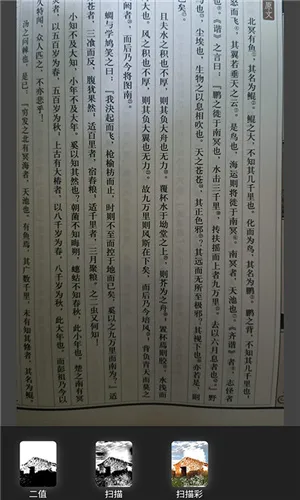 原文
北冥有鱼，其名为鲲。鲲之大，不知其几千里也。化而为鸟，其名为鹏。鹏之背，不知其几千里也，
怒而飞，其翼若垂天之云。是鸟也，海运则将徙于南冥。南冥者，天池也。《齐谐》者，志怪者
也。《谐》之言曰：“鹏之徙于南冥也，水击三千里，抟扶摇而上者九万里，去以六月息者也。”野
马也，尘埃也，生物之以息相吹也。天之苍苍，其正色邪？其远而无所至极邪？其视下也，亦若是，则
且夫水之积也不厚，则其负大舟也无力。覆杯水于坳堂之上，则芥为之舟。置杯焉则胶，水浅而
大也。风之积也不厚，则其负大翼也无力。故九万里则风斯在下矣，而后乃今培风；背负青天而莫之
阏者，而后乃今将图南。
蜩与学鸠笑之曰：“我决起而飞，枪榆枋而止，时则不至而控于地而已矣，奚以之九万里而南为？”适
莽苍者，三飡而反，腹犹果然；适百里者，宿舂粮；适千里者，三月聚粮。之二虫又何知！
小知不及大知，小年不及大年。奚以知其然也？朝菌不知晦朔，蟪蛄不知春秋，此小年也。楚之南有冥
灵者，以五百岁为春，五百岁为秋；上古有大椿者，以八千岁为春，八千岁为秋，此大年也。而彭祖乃今以
久特闻，众人匹之，不亦悲乎！
汤之问棘也是已：“穷发之北有冥海者，天池也。有鱼焉，其广数千里，未有知其修者，其名为鲲。
二值
扫描
扫描彩